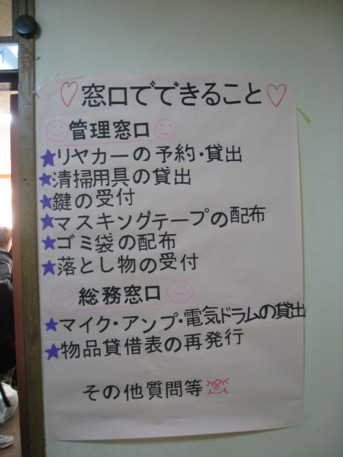 ♡窓口でできること♡
管理窓口
★リヤカーの予約・貸出
★清掃用具の貸出
★鍵の受付
★マスキングテープの配布
★ゴミ袋の配布
★落とし物の受付
総務窓口
★マイク・アンプ・電気ドラムの貸出
★物品貸借表の再発行
その他質問等